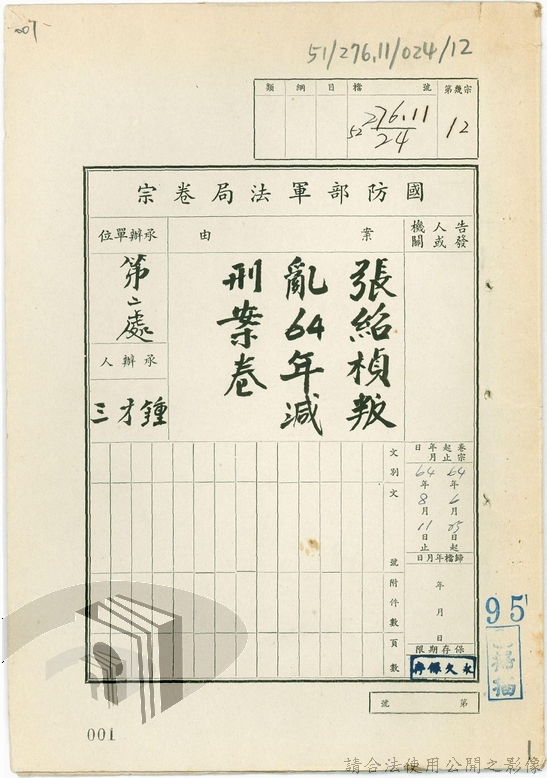 001
51/276.11/024/12
類 綱 目 檔 號 第幾宗
52 276.11/24 12
國防部軍法局卷宗
告發人或機關
案由
張紹楨叛
亂64年減
刑案卷
承辦單位
第二處
承辦人
鍾才三
卷宗起止年月日
64年 月25日起
64年8月11日止
歸檔年月日
年月日
保存期限
永久保存
文別
文號
附件數
頁數
第 號
95
掃描
001
1
請合法使用公開之影像